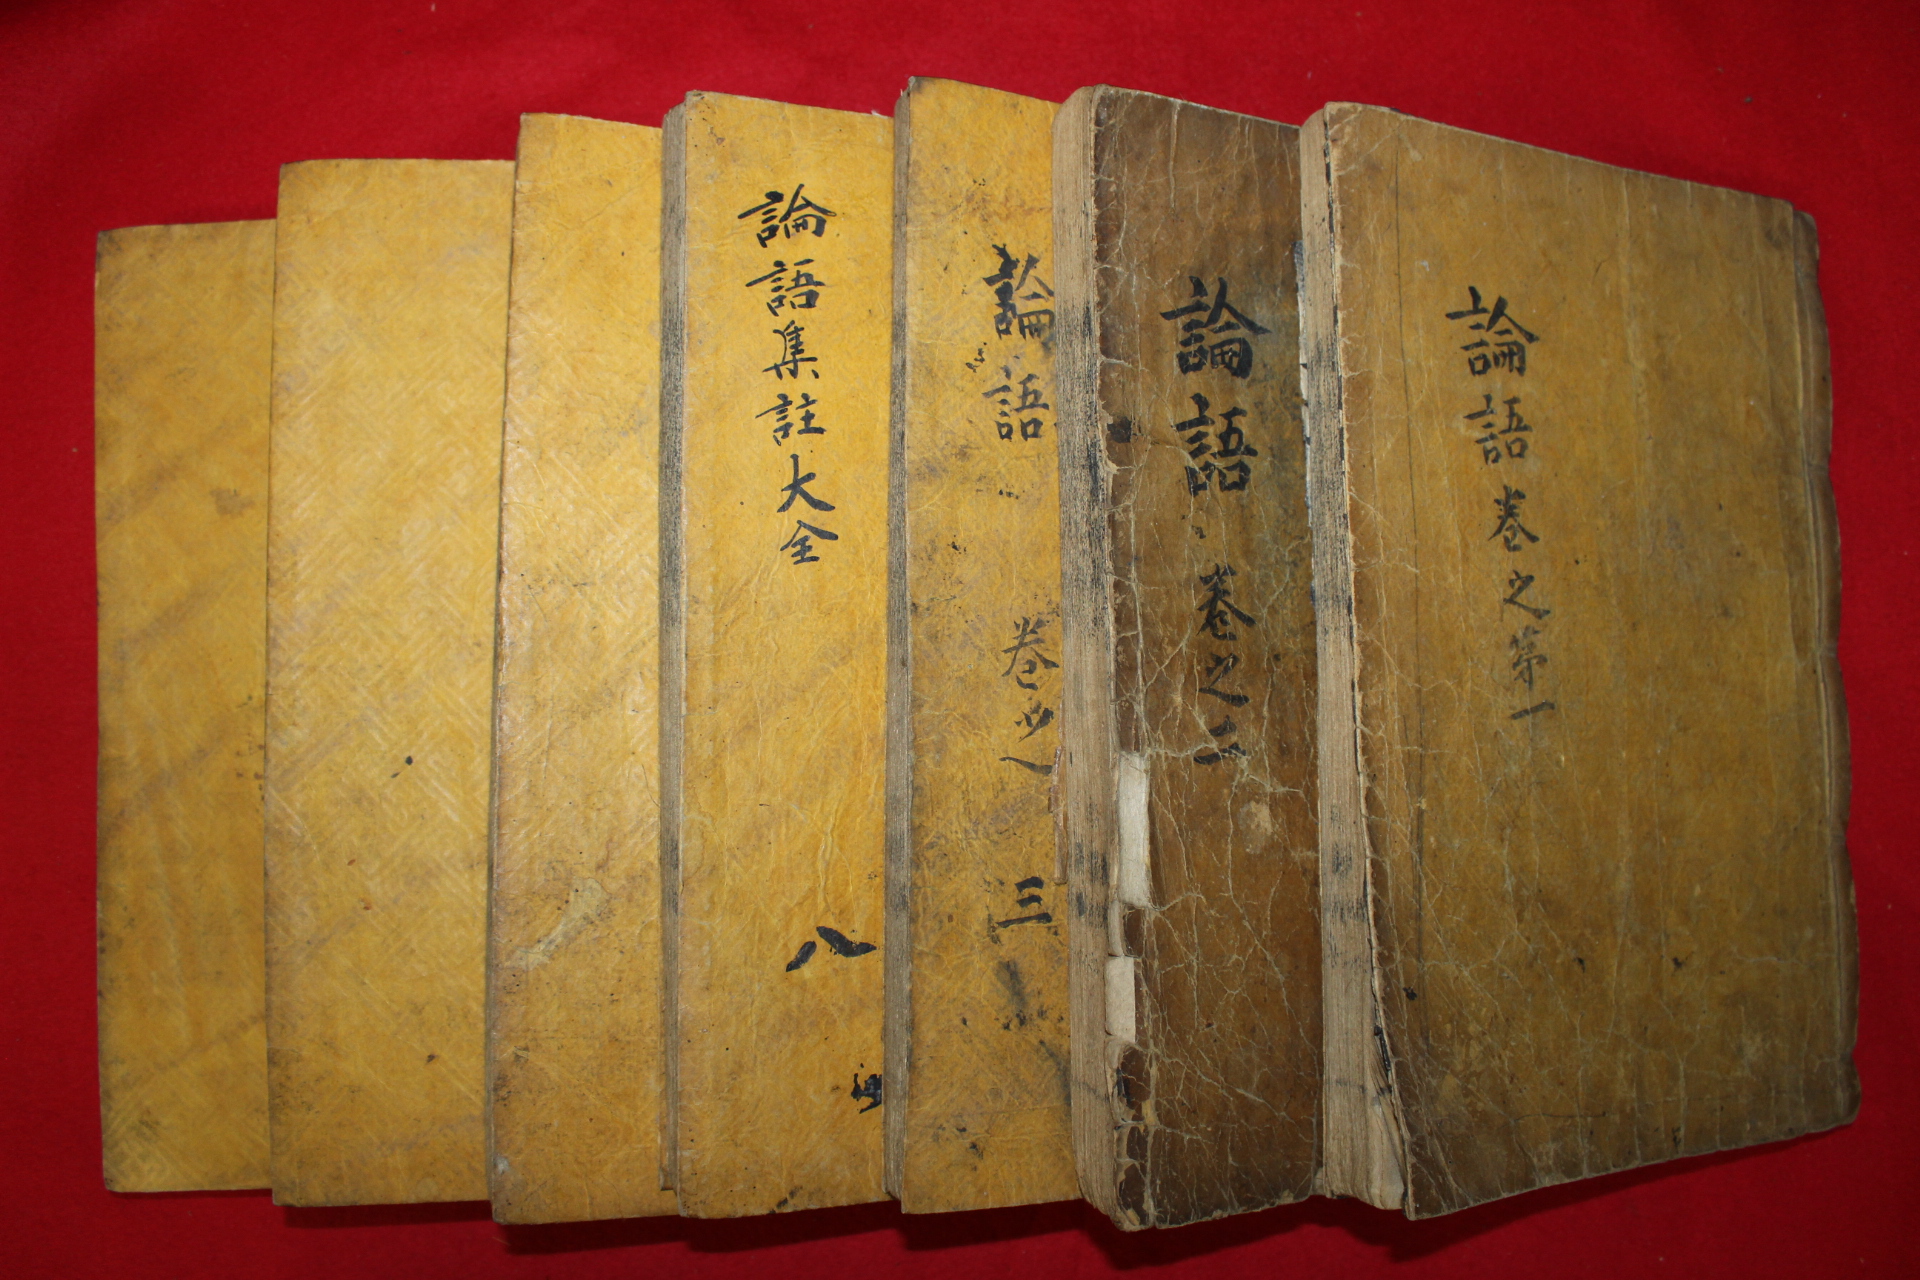 論語卷之第一
論語卷之二
論語卷之三
論語集註大全 八